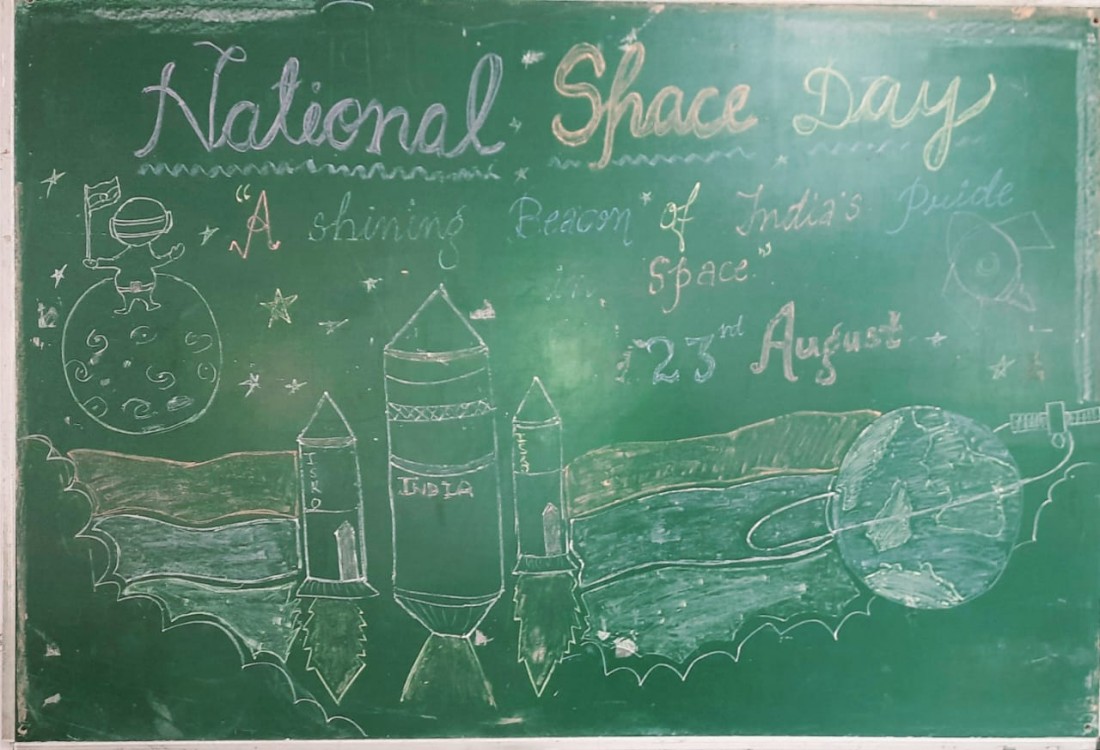 National Space Day
"A shining Beacon of India's Pride
in Space"
23rd August
INDIA